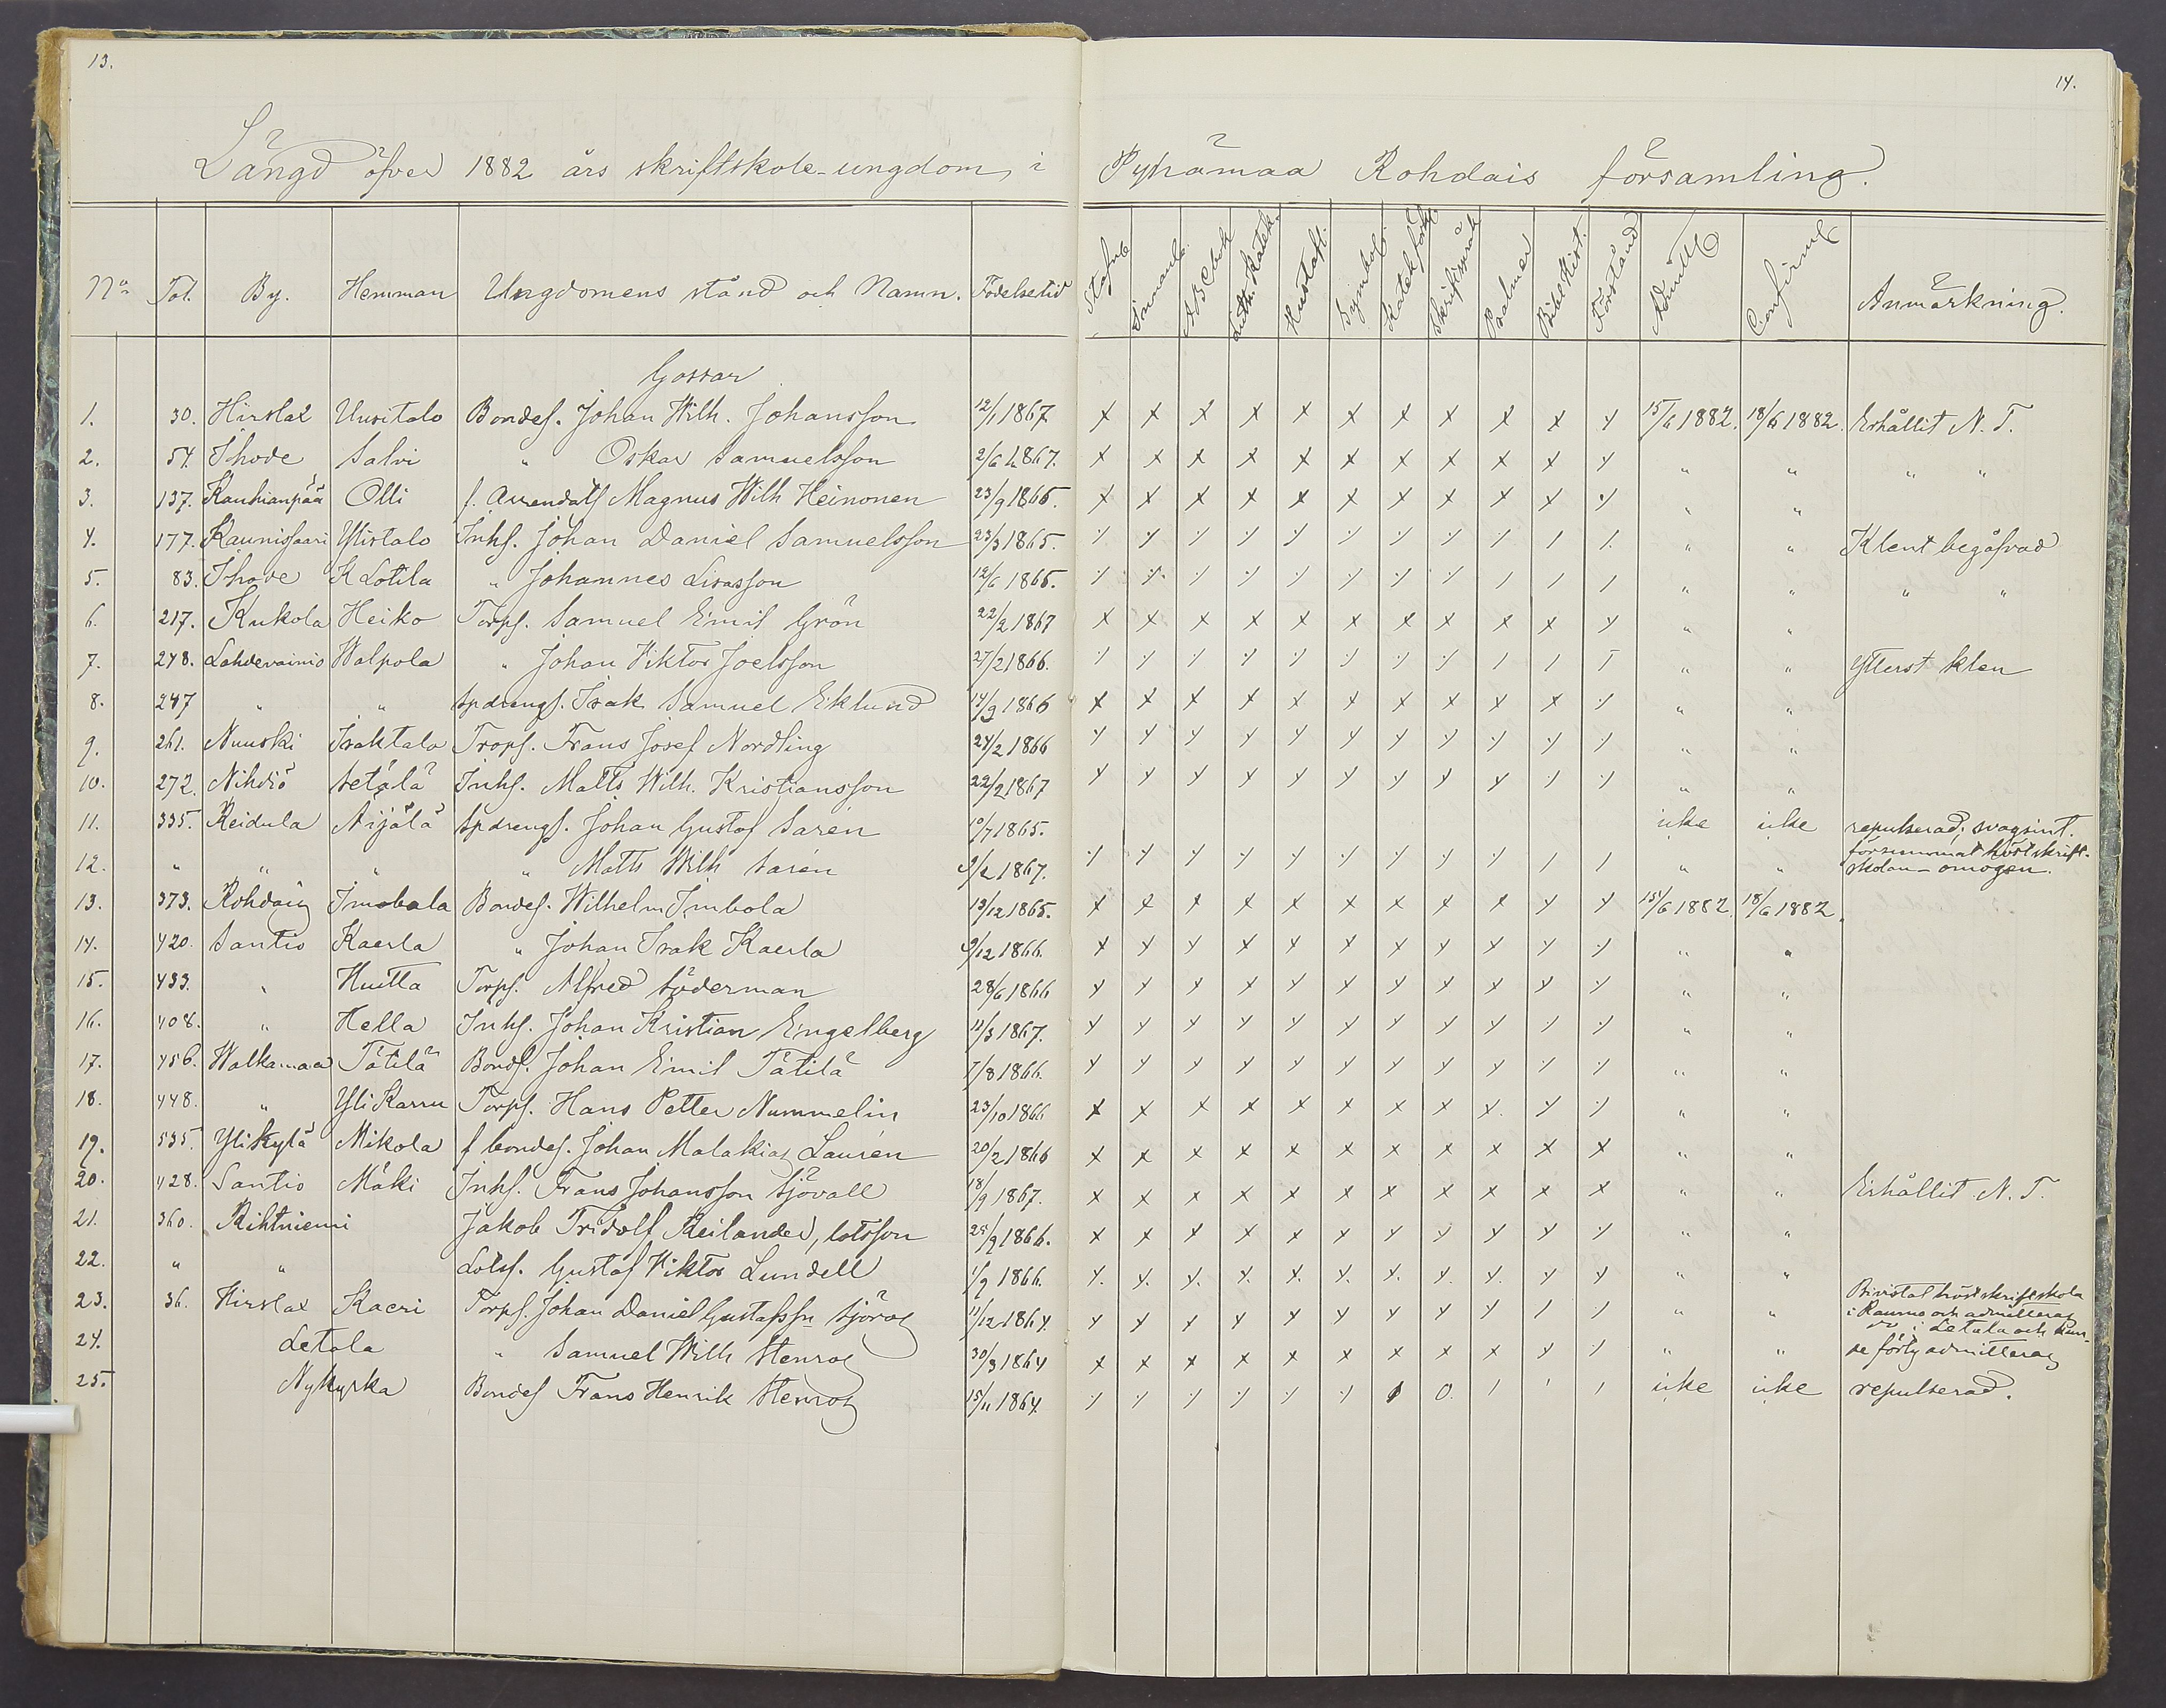 13.
14.
Längd öfver 1882 års skriftskole-ungdom i Pyhämaa Rohdais församling.
No Tot. By. Hemman Ungdomens stånd och Namn. Födelsetid Stafn. Innanl. ABCbok Luth. Katek. Hustafl. Symbol. Katek förkl. Skriftspråk Psalmer Bibel Hist. Förstånd Admitt Confirm Anmärkning.
Gossar
1. 30. Hirslax Uusitalo Bondes. Johan Wilh. Johansson 12/1 1867 x x x x x x x x x x y 15/6 1882. 18/6 1882. Erhållit N. T.
2. 54. Ihode Salvi " Oskar Samuelsson 2/6 1867. x x x x x x x x x x y " " " "
3. 137. Kauhianpää Olli f. Arrendats Magnus Wilh Heinonen 23/9 1866. x x x x x x x x x y ʼ/. " "
4. 177. Kaunissaari Ylistalo Inhs. Johan Daniel Samuelsson 23/3 1865. " " Klent begåfvad
5. 83. Ihode K Lotila " Johannes Lisasson 12/6 1866. " " " "
6. 217. Kukola Heiko Torps. Samuel Emil Grön 22/2 1867 x x x x x x x x x x y " "
7. 248. Lahdevainio Walpola " Johan Viktor Joelsson 27/2 1866. " " Ytterst klen
8. 247 " " Spdrengs. Isak Samuel Eklund 14/9 1866 x x x x x x x x x x " "
9. 261. Nuuski Isaktalo Trops. Frans Josef Nordling 24/2 1866 y y y y y y y " "
10. 272. Nihdiö Setälä Inhs. Matts Wilh. Kristiansson 22/2 1867 y y y y y y y y y " "
11. 335. Reidula Äijälä Spdrengs. Johan Gustaf Sarén 10/7 1865. icke icke repulserad; svagsint.
12. " " " " Matts Wilh Sarén 9/2 1867. " " försummat höstskrift-
skolan - omogen.
13. 373. Rohdais Imobala Bondes. Wilhelm Imbola 13/12 1865. x x x x x x x x x y y 15/6 1882. 18/6 1882.
14. 420. Santio Kaerla " Johan Isak Kaerla 9/12 1866. x y y x x x x y y y " "
15. 433. " Huitta Torps. Alfred Söderman 28/6 1866 y y y y y y y y y y " "
16. 408. " Hella Inhs. Johan Kristian Engelberg 12/3 1867. y y y y y y y y y " "
17. 456. Walkamaa Tätilä Bonds. Johan Emil Tätilä 7/8 1866. y y y y y y y y y " "
18. 448. " Yli Karru Torps. Hans Petter Nummelin 23/10 1866 x x x x x x x x x. y " "
19. 535. Ylikylä Mikola f bondes. Johan Malakias Laurén 20/2 1866 x x x x x x x x x x x " "
20. 428. Santio Mäki Inhs. Frans Johansson Sjövall 18/9 1867. x x x x x x x x x x x " " Erhållit N. T.
21. 360. Rihtniemi Jakob Fridolf Reilander, lotsson 25/9 1866. x x x x x y y y y y " "
22. " " Lotss. Gustaf Viktor Lundell 1/9 1866. y. y. y. y. y. y. y. y. y. y y " "
23. 36. Hirslax Kaeri Torps. Johan Daniel Gustafsson Sjöros 11/12 1864. y y y y y y y y y " " Bivistat höstskriftskola
i Raumo och admitteras
24. Letala " Samuel Wilh Stenros 30/3 1864 x x x x x x x x x y " " i Letala och kun-
de förty admitteras
25. Nykyrka Bondes Frans Henrik Stenros 15/11 1864. 0. icke icke repulserad.